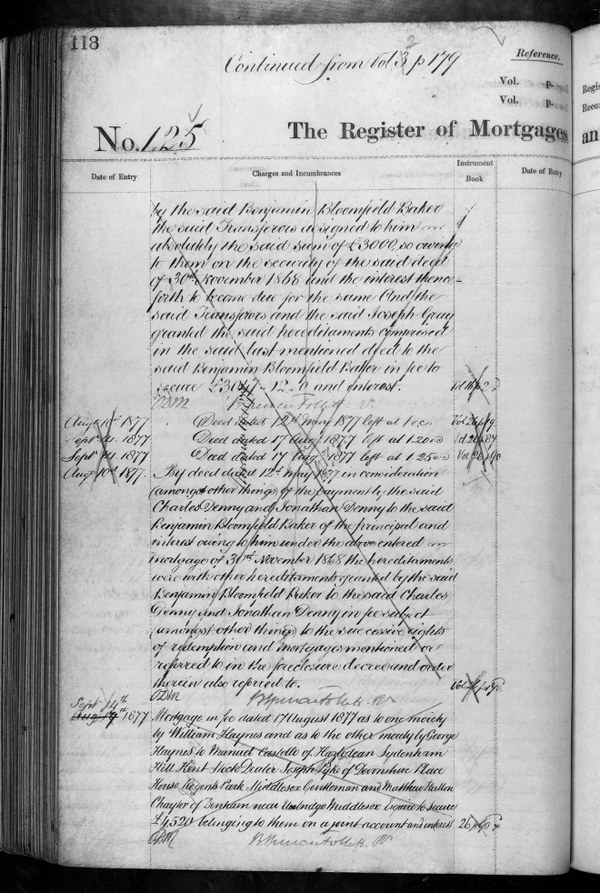 113
Continued from Vol 2 p 179
Reference.
Vol. p.
Vol. p.
No. 125
The Register of Mortgages
an
Regis
Reco
Date of Entry
Charges and Incumbrances
Instrument
Book
Date of Entry
by the said Benjamin Bloomfield Baker
the said Transferors assigned to him
absolutely the said sum of £3000, so owing
to them on the security of the said deed
of 30th November 1868 and the interest thence-
forth to become due for the same And the
said Transferors and the said Joseph Gray
granted the said hereditaments comprised
in the said last mentioned deed to the
said Benjamin Bloomfield Baker in fee to
secure and interest.
Augt 10th 1877 Deed dated 12th May 1877 left at 1 o.c.
Septr 14 1877 Deed dated 17 Augt 1877 left at 1.20
Septr 14 1877 Deed dated 17 Augt 1877 left at 1.25
Augt 10th 1877. By deed dated 12th May 1877 in consideration
(amongst other things) of the payment by the said
Charles Denny and Jonathan Denny to the said
Benjamin Bloomfield Baker of the principal and
interest owing to him under the above entered
mortgage of 30th November 1868 the hereditaments
were with other hereditaments granted by the said
Benjamin Bloomfield Baker to the said Charles
Denny and Jonathan Denny in fee subject
(amongst other things) to the successive rights
of redemption and mortgages mentioned or
referred to in the foreclosure decree and order
therein also referred to.
Septr 14th
1877 Mortgage in fee dated 17 August 1877 as to one moiety
by William Haynes and as to the other moiety by George
Haynes to Manuel Castello of Hazledean Sydenham
Hill Kent Stock Dealer Joseph Pyke of Devonshire Place
House Regents Park Middlesex Gentleman and Matthew
of Denham near Uxbridge Middlesex Esquire to secure
£4,520 belonging to them on a joint account and interest 26 p 90